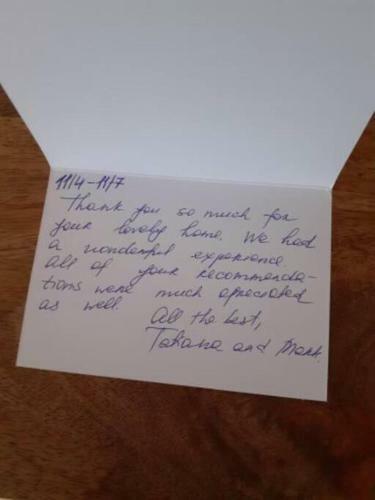 11/4 - 11/7
Thank you so much for
your lovely home. We had
a wonderful experience.
All of your recommenda-
tions were much apreciated
as well.
All the best,
and Mark.